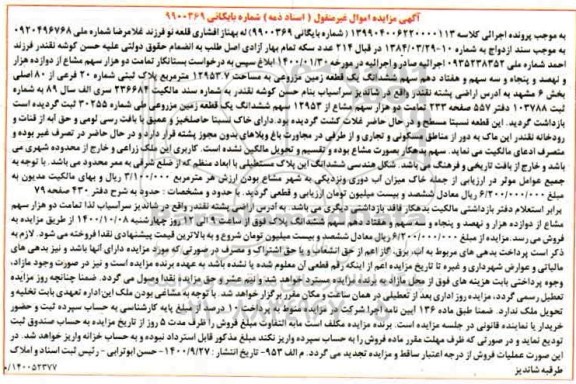 آگهی مزایده اموال غیرمنقول ( اسناد ذمه) شماره بایگانی ۹۹۰۰۳۶۹
به موجب پرونده اجرائی کلاسه ۱۳۹۹۴۰۰۶۲۲۰۰۰۰۱۱۳ (شماره بایگانی ۹۹۰۰۳۶۹) له بهناز افشاری قلعه نو فرزند غلامرضا شماره ملی ۰۹۲۰۴۹۶۷۶۸
به موجب سند ازدواج به شماره ۱۰-۱۳۸۴/۰۳/۲۹ در قبال ۲۱۴ عدد سکه تمام بهار آزادی اصل طلب به انضمام حقوق دولتی علیه حسن کوشه نقندر فرزند
احمد شماره ملی ۰۹۳۵۲۳۸۳۵۲ اجرائیه صادر و اجرائیه در مورخه ۱۴۰۰/۰۱/۳۰ ابلاغ سپس به درخواست بستانکار تمامت دو هزار سهم مشاع از دوازده هزار
و نهصد و پنجاه و سه سهم و هفتاد دهم سهم ششدانگ یک قطعه زمین مزروعی به مساحت ۱۲۹۵۳.۷ مترمربع پلاک ثبتی شماره ۲۰ فرعی از ۸۰ اصلی
بخش ۶ مشهد به آدرس اراضی پشته نقندر واقع در شاندیز سرآسیاب بنام حسن کوشه نقندر، به شماره سند مالکیت ۲۳۶۶۸۴ سری الف سال ۸۹ به شماره
ثبت ۱۰۳۷۸۸ دفتر ۵۵۷ صفحه ۲۳۳ تمامت دو هزار سهم مشاع از ۱۲۹۵۳ سهم ششدانگ یک قطعه زمین مزروعی طی شماره ۳۰۲۵۵ ثبت گردیده است
بازداشت گردید. این قطعه نسبتا مسطح و در حال حاضر غلات کشت گردیده بود. دارای خاک نسبتا حاصلخیز و عمیق با بافت رسی لومی و حق آبه از قنات و
رودخانه نقندر، این ملک به دور از مناطق مسکونی و تجاری و از طرفی در مجاورت باغ ویلاهای بدون مجوز پشته قرار دارد و در حال حاضر در تصرف غیر بوده و
متصرف ادعای مالکیت می نماید. سهم بدهکار بصورت مشاع بوده و تقسیم و تحویل مالکین نشده است. کاربری این ملک زراعی و خارج از محدوده شهری می
باشد و خارج از بافت تاریخی و فرهنگی می باشد. شکل هندسی ششدانگ این پلاک مستطیلی با ابعاد منظم که از ضلع شرقی به معبر محدود می باشد. با توجه به
جمیع عوامل موثر در ارزیابی از جمله خاک میزان آب دوری ونزدیکی به شهر مشاع بودن ارزش هر مترمربع ۳/۱۰۰/۰۰۰ ریال و بهای مالکیت مدیون به
مبلغ ۶/۲۰۰/۰۰۰/۰۰۰ ریال معادل ششصد و بیست میلیون تومان ارزیابی و قطعی گردید. با حدود و مشخصات : حدود به شرح دفتر ۴۳۰ صفحه ۷۹
برابر استعلام دفتر بازداشتی مالکیت بدهکار فاقد بازداشتی دیگری می باشد. به آدرس اراضی پشته نقندر واقع در شاندیز سرآسیاب لذا تمامت دو هزار سهم
مشاع از دوازده هزار و نهصد و پنجاه و سه سهم و هفتاد دهم سهم ششدانگ پلاک فوق از ساعت ۹ الی ۱۲ روز چهارشنبه ۱۴۰۰/۱۰/۰۸ از طریق مزایده به
فروش می رسد. مزایده از مبلغ ۶/۲۰۰/۰۰۰/۰۰۰ ریال معادل ششصد و بیست میلیون تومان شروع و به بالاترین قیمت پیشنهادی نقدا فروخته می شود. لازم به
ذکر است پرداخت بدهی های مربوط به آب، برق، گاز اعم از حق انشعاب و یا حق اشتراک و مصرف در صورتی که مورد مزایده دارای آنها باشد و نیز بدهی های
مالیاتی و عوارض شهرداری و غیره تا تاریخ مزایده اعم از اینکه رقم قطعی آن معلوم شده یا نشده باشد به عهده برنده مزایده است و نیز در صورت وجود مازاد،
وجوه پرداختی بابت هزینه های فوق از محل مازاد، به برنده مزایده مسترد خواهد شد و نیم عشر و حق مزایده نقدا وصول می گردد. ضمنا چنانچه روز مزایده
تعطیل رسمی گردد، مزایده روز اداری بعد از تعطیلی در همان ساعت و مکان مقرر برگزار خواهد شد. با توجه به مشاعی بودن ملک این اداره تعهدی بابت تخلیه و
تحویل ملک ندارد. ضمنا طبق ماده ۱۳۶ آیین نامه اجرا شرکت در مزایده منوط به پرداخت ۱۰ درصد از مبلغ پایه کارشناسی به حساب سپرده ثبت و حضور
خریدار یا نماینده قانونی در جلسه مزایده است. برنده مزایده مکلف است مابه التفاوت مبلغ فروش را ظرف مدت ۵ روز از تاریخ مزایده به حساب صندوق ثبت
تودیع نماید و در صورتی که ظرف مهلت مقرر مانده فروش را به حساب سپرده واریز نکند مبلغ مذکور قابل استرداد نبوده و به حساب خزانه واریز خواهد شد. در
این صورت عملیات فروش از درجه اعتبار ساقط و مزایده تجدید می گردد. م الف ۹۵۳- تاریخ انتشار : ۱۴۰۰/۹/۲۷- حسن ابوترابی - رئیس ثبت اسناد و املاک
طرقبه شاندیز
۱۴۰۰۵۲۳۷۷/